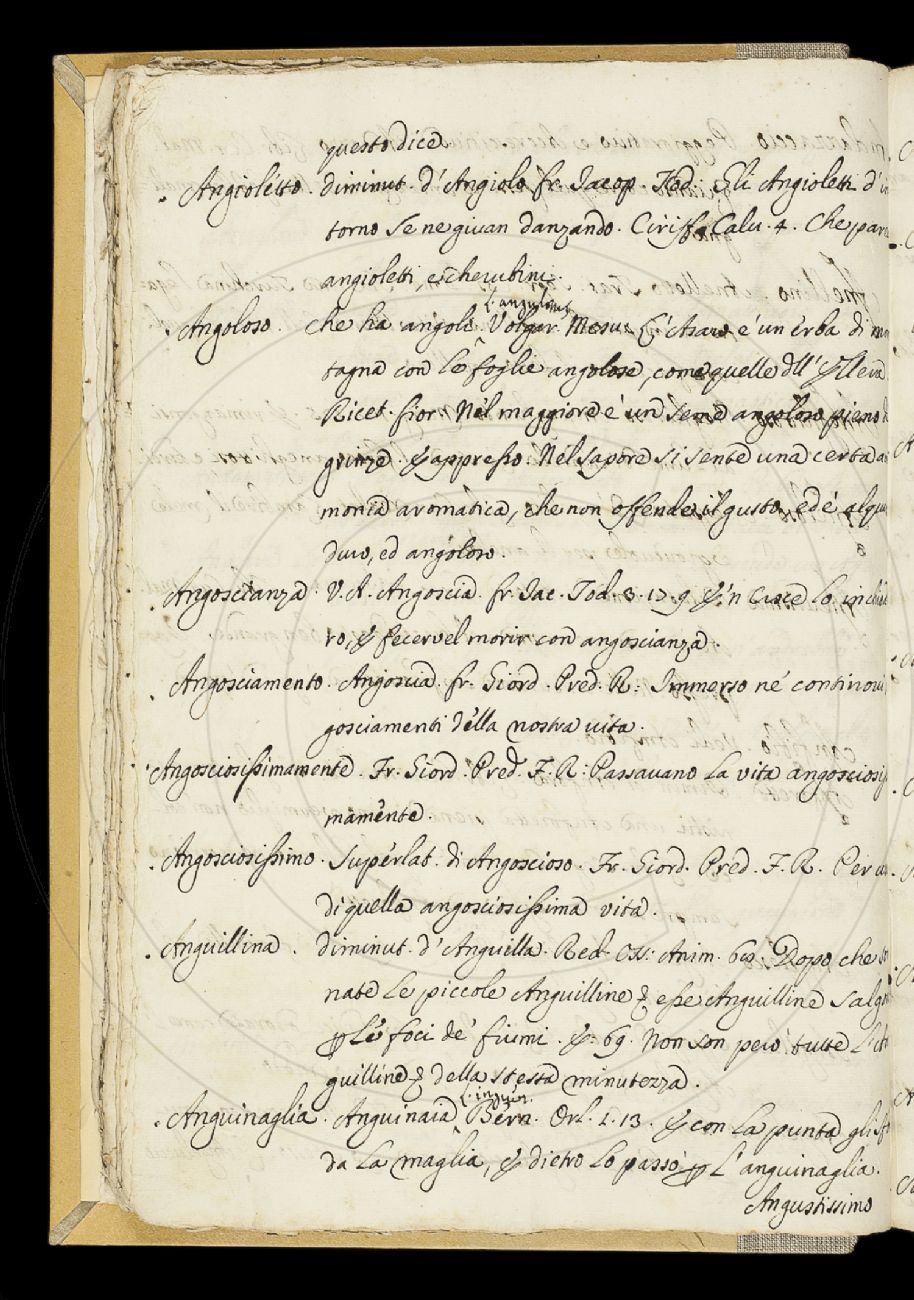 questo dice
Angioletto. diminut. d'Angiolo fr. Jacop. Tod. Gli Angioletti d'in
torno se ne givan danzando. Ciriff. Calu. 4. Che par
angioletti, e cherubini.
L. angulosus
Angoloso. che ha angoli. Volgar. Mesue L'Asaro é un erba di mo
tagna con le foglie angolose, come quelle dell' Ellera
Ricet. fior. Nel maggiore é un seme angoloso pieno d
grinze. & appresso: Nel sapore si sente una certa a
monia aromatica, che non offende il gusto, ed é alqu
duro, ed angoloso.
Angoscianza. V.A. Angoscia. fr. Jac. Tod. 3. 17. 9 E'n Croce lo inchiod
ro, & fecervel morir con angoscianza.
Angosciamento. Angoscia. fr. Giord. Pred. R: Immerso né continovi
gosciamenti della nostra vita.
Angosciosissimamente. Fr. Giord. Pred. F. R: Passavano la vita angosciosis
mamente.
Angosciosissimo. Superlat. di Angoscioso. Fr. Giord. Pred. F. R. Per
di quella angosciosissima vita.
Anguillina. diminut. d'Anguilla. Red. Oss: Anim. 69: Dopo che
nate le piccole Anguilline & esse Anguilline salg
p le foci de' fiumi. E: 69. Non son però tutte l'A
guilline & della stessa minutezza.
L. inguin.
Anguinaglia. Anguinaia Bern. Orl. 1. 13. E con la punta gli sf
da la maglia, E dietro lo passò p l'anguinaglia.
Angustissimo